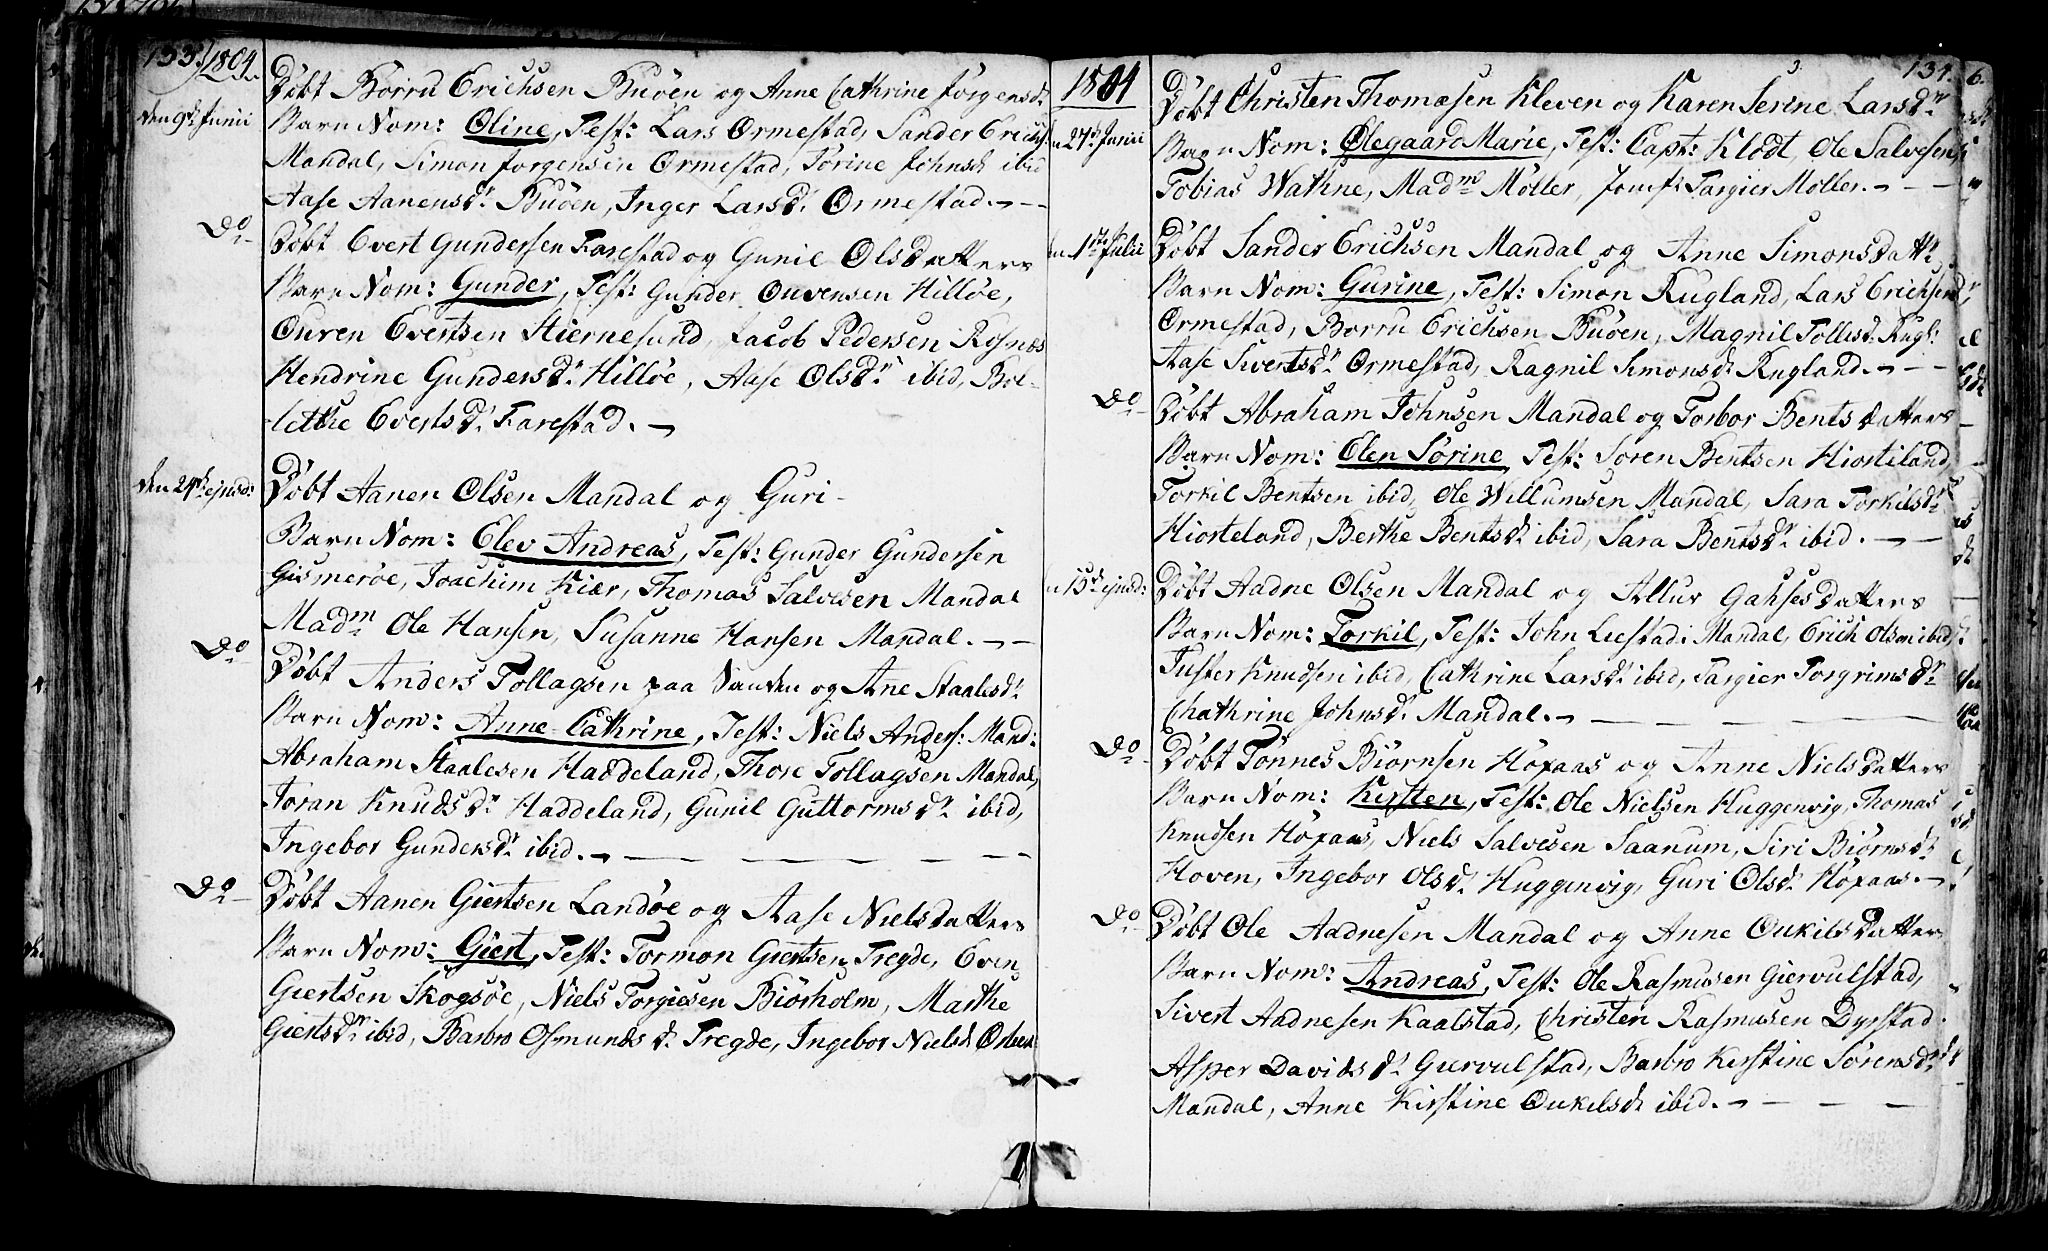 133. 1804
den 9de Junii
Døbt Borru Erichsen Buöen og Anne Cathrine Jörgensdr
Barn Nom: Oline, Test: Lars Ormestad, Sander Erichs:
Mandal, Simon Jorgensen Ormestad, Torine Johnsdr ibid
Aase Aanensdr Buöen, Inger Larsdr Ormestad. —
Do
Døbt Evert Gundersen Farestad og Gunil Olsdatters
Barn Nom: Gunder, Test: Gunder Ouvensen Hillöe,
Ouren Evertsen Hiernesund, Jacob Pedersen Rosnæs
Hendrine Gundersdr Hillöe, Aase Olsdr ibid, Bol-
lethe Evertsdr Farestad. —
den 24de ejusd:
Døbt Aanen Olsen Mandal og Guri -
Barn Nom: Elev Andreas, Test: Gunder Gundersen
Gismeröe, Joachum Kiær, Thomas Salvesen Mandal
Madm Ole Hansen, Susanne Hansen Mandal. —
Do
Døbt Anders Tollagsen paa Sanden og Ane Staalesdr
Barn Nom: Anne Cathrine, Test: Niels Anders: Mand:
Abraham Staalesen Haddeland, Thore Tollagsen Mandal,
Joran Knudsdr Haddeland, Gunil Guttormsdr ibid,
Ingebor Gundersdr ibid. —
Do
Døbt Aanen Giertsen Landöe og Aase Nielsdatters
Barn Nom: Giert, Test: Tormon Giertsen Tregde, Even
Giertsen Skogsöe, Niels Torgiesen Biörholm, Marthe
Giertsdr ibid, Barbro Osmundsdr Tregde, Ingebor Nielsdr
1804
131.
24de Junii
Døbt Christen Thomæsen Kleven og Karen Serine Larsdr
Barn Nom: Ølegaard Marie, Test: Capt: Klodt, Ole Salvesen,
Tobias Wathne, Madme Möller, Jomfr Targier Möller. —
1ste Julii
Døbt Sander Erichsen Mandal og Anne Simonsdattr
Barn Nom: Gurine, Test: Simon Rugland, Lars Erichsen
Ormestad, Borru Erichsen Buöen, Magnil Tollisdr Rugl:
Aase Sivertsdr Ormestad, Ragnil Simonsdr Rugland. —
Do
Døbt Abraham Johnsen Mandal og Torbor Bentsdatters
Barn Nom: Elen Sörine, Test: Soren Bentsen Hiorteland,
Torkil Bentsen ibid, Ole Willumsen Mandal, Sara Torkilsdr
Hiorteland, Berthe Bentsdr ibid, Sara Bentsdr ibid. —
15de ejusd:
Døbt Aadne Olsen Mandal og Allur Gahsesdatters
Barn Nom: Torkil, Test: John Liestad: Mandal, Erich Olsen ibid,
Juster Knudsen ibid, Cathrine Larsdr ibid, Targier Torgrimsdr
Chathrine Johnsdr Mandal. —
Do
Døbt Tönnes Biörnsen Höxaas og Anne Nielsdatters
Barn Nom: Kirsten, Test: Ole Nielsen Huggenvig, Thomas
Knudsen Höxaas, Niels Salvesen Saanum, Siri Biörnsdr
Hoven, Ingebor Olsdr Huggenvig, Guri Olsdr Höxaas. —
Do
Døbt Ole Aadnesen Mandal og Anne Oukilsdatters
Barn Nom: Andreas, Test: Ole Rasmusen Giervulstad,
Sivert Aadnesen Kaalstad, Christen Rasmusen Dyrstad.
Asper Davidsdr Giervulstad, Barbro Kirstine Sörensdr
Mandal, Anne Kirstine Oukilsdr ibid. —